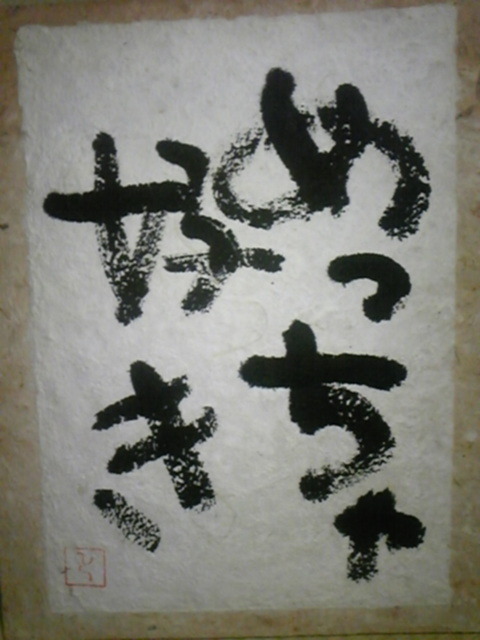 めっちゃ
好き